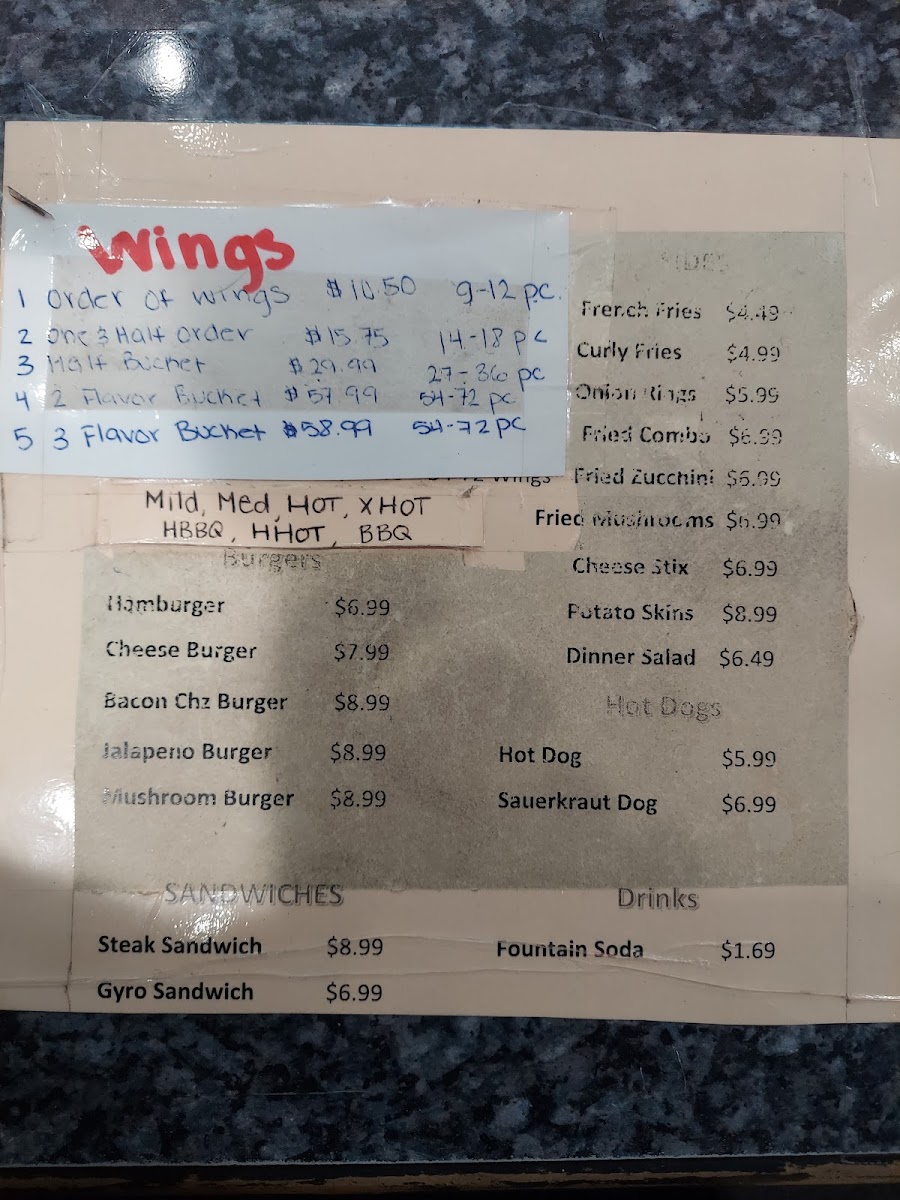 Wings
1 Order of wings $10.50 9-12 pc.
2 One & Half Order $15.75 14-18 pc
3 Half Bucket $29.99 27-36 pc
4 2 Flavor Bucket $57.99 54-72 pc
5 3 Flavor Bucket $58.99 54-72 pc
Wings
Mild, Med, HOT, X HOT
HBBQ, HHOT, BBQ
Burgers
Hamburger $6.99
Cheese Burger $7.99
Bacon Chz Burger $8.99
Jalapeno Burger $8.99
Mushroom Burger $8.99
SANDWICHES
Steak Sandwich $8.99
Gyro Sandwich $6.99
SIDES
French Fries $4.49
Curly Fries $4.99
Onion Rings $5.99
Fried Combo $6.99
Fried Zucchini $6.99
Fried Mushrooms $6.99
Cheese Stix $6.99
Potato Skins $8.99
Dinner Salad $6.49
Hot Dogs
Hot Dog $5.99
Sauerkraut Dog $6.99
Drinks
Fountain Soda $1.69